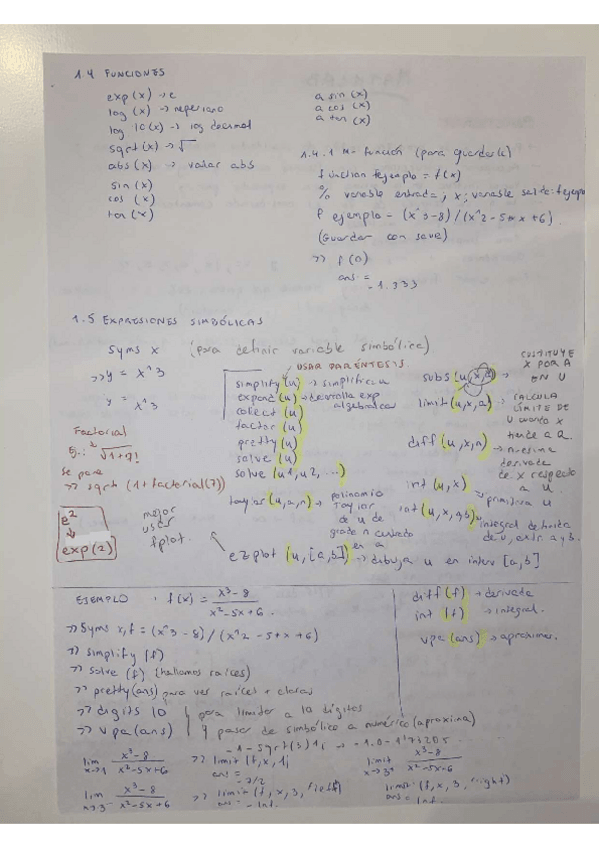 1.4 FUNCIONES
exp (x) → e
log (x) → neperiano
log 10 (x) → log decimal
sqrt (x) → √
abs (x) → valor abs
sin (x)
cos (x)
tan (x)
a sin (x)
a cos (x)
a tan (x)
1.4.1 M- función (para guardarla)
function fejemplo = f(x)
% variable entrada: x; variable salida: fejemplo
f ejemplo = (x^3-8) / (x^2 -5*x +6)
(Guardar con save)
>> f (0)
ans =
-1.333
1.5 EXPRESIONES SIMBÓLICAS
Syms x (para definir variable simbólica)
>> y = x^3
y = x^3
USAR PARÉNTESIS
simplify (u) → simplifica u
expand (u) → desarrolla exp
algebraica
collect (u)
factor (u)
pretty (u)
solve (u)
solve (u1, u2, ...)
taylor (u,a,n) → polinomio
Taylor
de u de
grado n centrado
en a
ezplot (u, [a,b]) → dibuja u en interv [a,b]
mejor
usar
fplot.
subs (u,x,a) →
SUSTITUYE
X POR A
EN U
limit (u,x,a) →
CALCULA
LÍMITE DE
U cuando x
tiende a a.
diff (u,x,n) →
n-esima
derivada
de x respecto
a u.
int (u,x)
primitiva u
int (u,x,a,b)
integral definida
de u, extr a y b.
Factorial
√1+7!
se pone
>> sqrt (1+factorial(7))
e²
↓
exp(2)
EJEMPLO : f(x) = x³-8 / x²-5x+6.
>> Syms x, f = (x^3 -8) / (x^2 -5*x +6)
>> simplify (f)
>> solve (f) (hallamos raíces)
>> pretty(ans) para ver raíces + claras
>> digits 10 para limitar a 10 dígitos
>> vpa (ans) y pasar de simbólico a numérico (aproxima)
diff (f) → derivada
int (f) → integral.
vpa (ans) → aproximar.
lim x→1 x³-8 / x²-5x+6
>> limit (f,x,1)
ans =
-7/2
lim x³-8 / x²-5x+6
>> limit (f, x, 3, left)
ans = -Inf.
limit x³-8 / x²-5x-6
limit (f,x, 3, right)
ans = Inf.